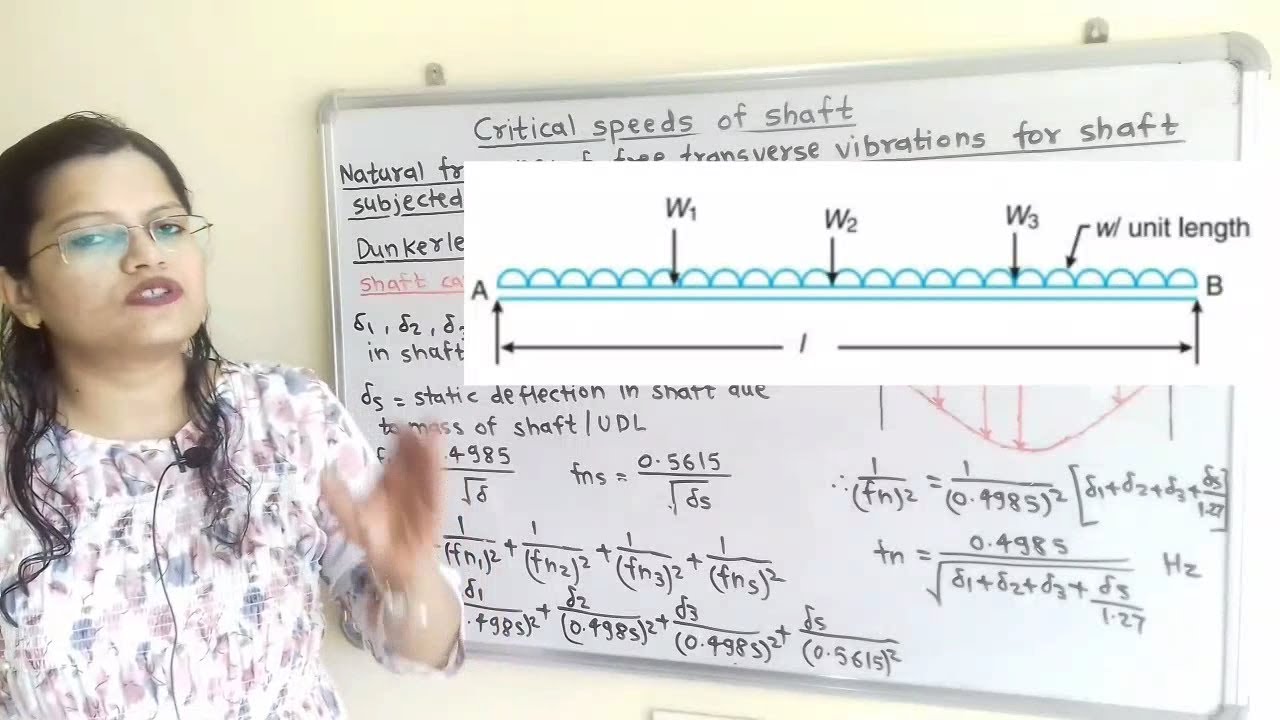 Critical speeds of shaft
Natural free transverse vibrations for shaft
subjected
Dunkerle
shaft ca
W1
W2
W3
w/ unit length
A
B
l
δ1, δ2, δ
in shaft
δs = static deflection in shaft due
to mass of shaft/UDL
.4985/√δ fns = 0.5615/√δs
1/(fn1)² + 1/(fn2)² + 1/(fn3)² + 1/(fns)²
δ1/(.4985)² + δ2/(0.4985)² + δ3/(0.4985)² + δs/(0.5615)²
∴ 1/(fn)² = 1/(0.4985)² [δ1+δ2+δ3+δs/1.27]
fn = 0.4985/√(δ1+δ2+δ3+δs/1.27) Hz